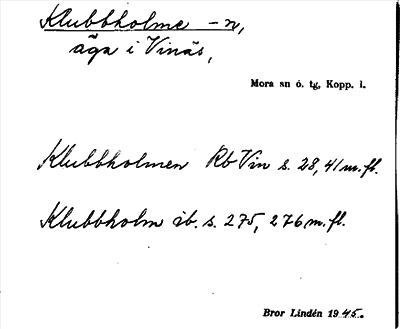 Klubbholme -n,
äga i Vinäs,
Mora sn ö. tg, Kopp. l.
Klubbholmen Rb Vin s. 28, 41 m. fl.
Klubbholm ib. s. 275, 276 m. fl.
Bror Lindén 1945.